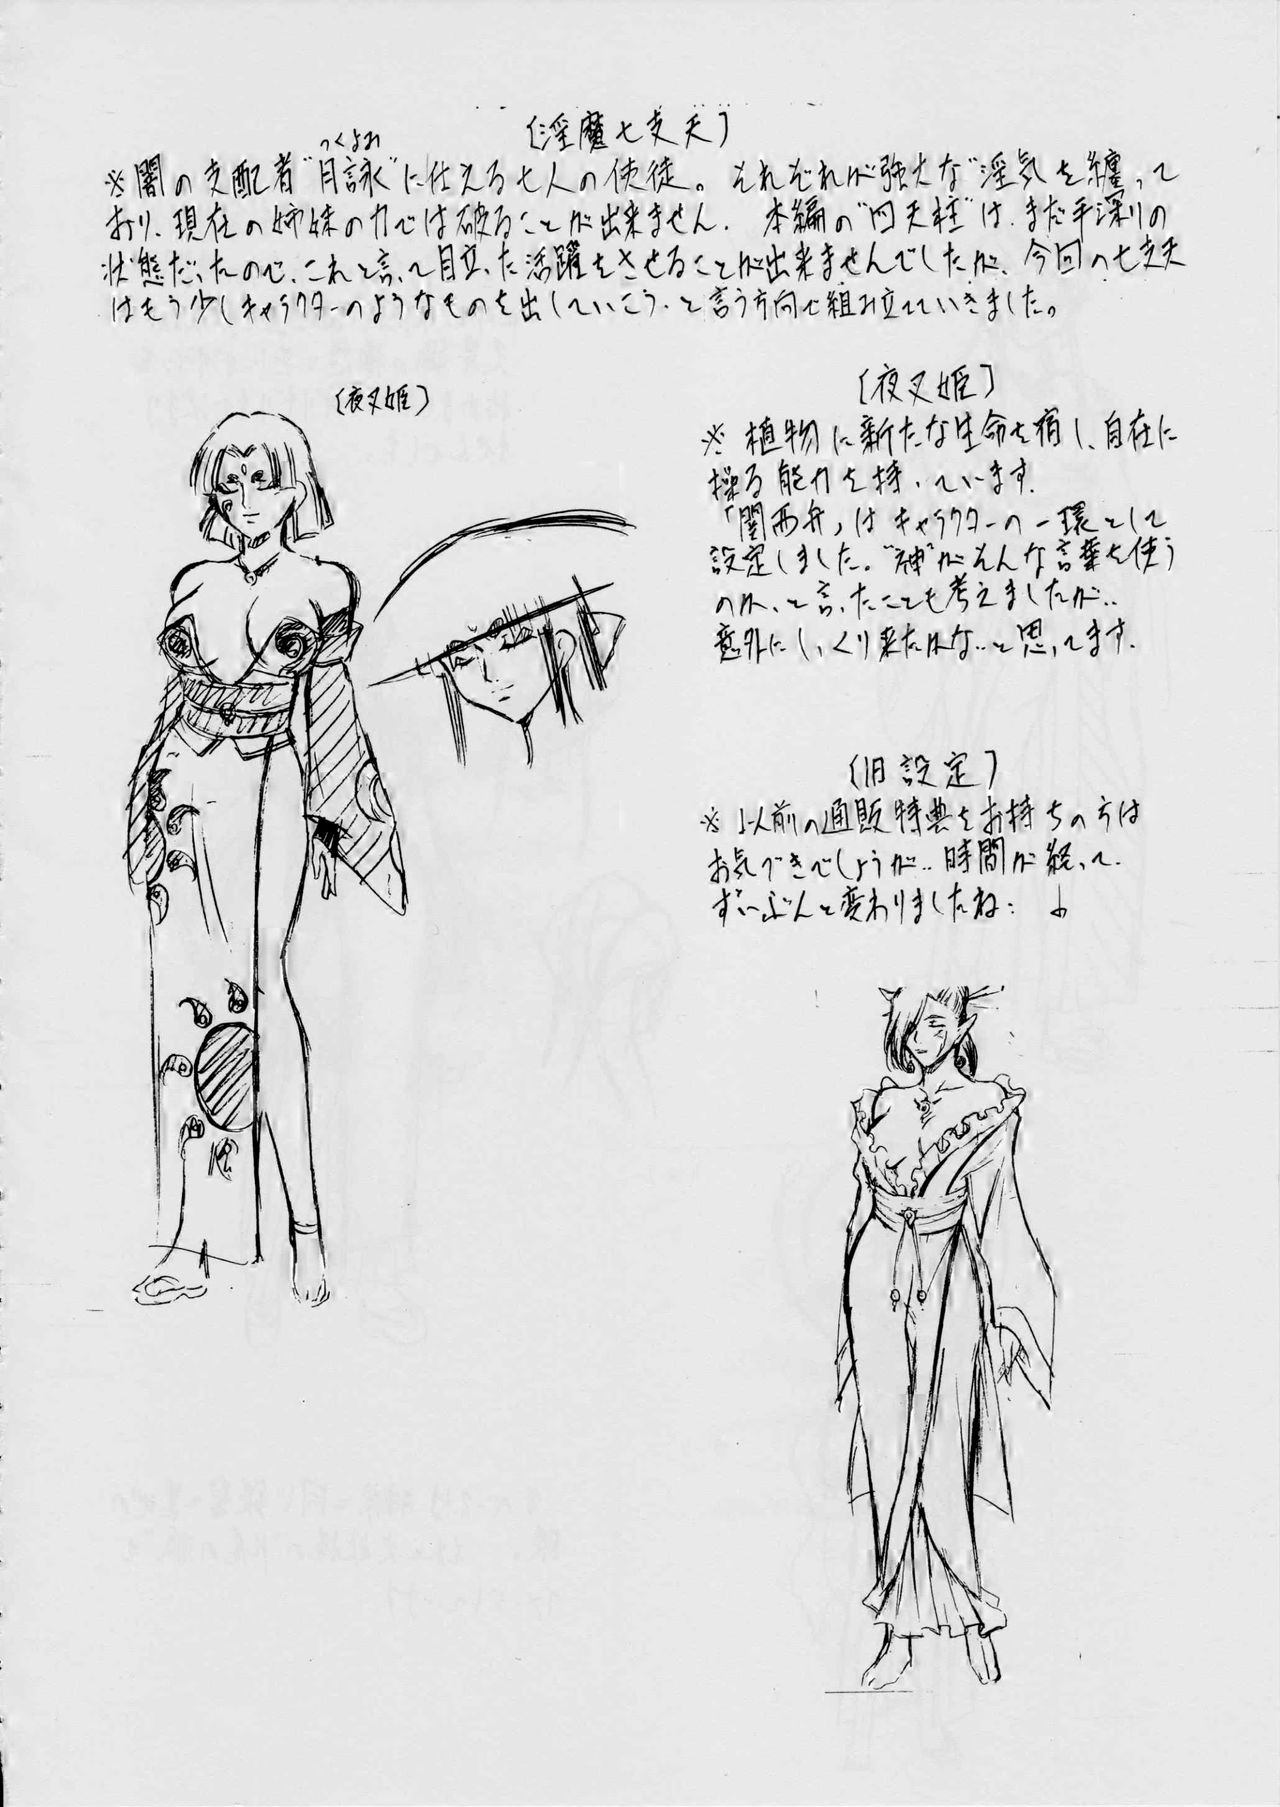 〔淫魔七支天〕
つくよみ
※闇の支配者"月詠"に仕える七人の使徒。それぞれが強大な"淫気を纏って
おり、現在の姉妹の力では破ることが出来ません。本編の"四天柱"は、まだ手探りの
状態だったので、これと言って目立った活躍をさせることが出来ませんでしたが、今回の七支天
はもう少しキャラクターのようなものを出していこう、と言う方向で組み立てていきました。
〔夜叉姫〕
〔夜叉姫〕
※植物に新たな生命を宿し、自在に
操る能力を持っています。
「関西弁」はキャラクターの一環として
設定しました。"神"がそんな言葉を使う
のか、と言ったことも考えましたが‥
意外にしっくり来たかな‥と思ってます。
〔旧設定〕
※以前の通販特典をお持ちの方は
お気づきでしょうが‥時間が経って
ずいぶんと変わりましたね‥